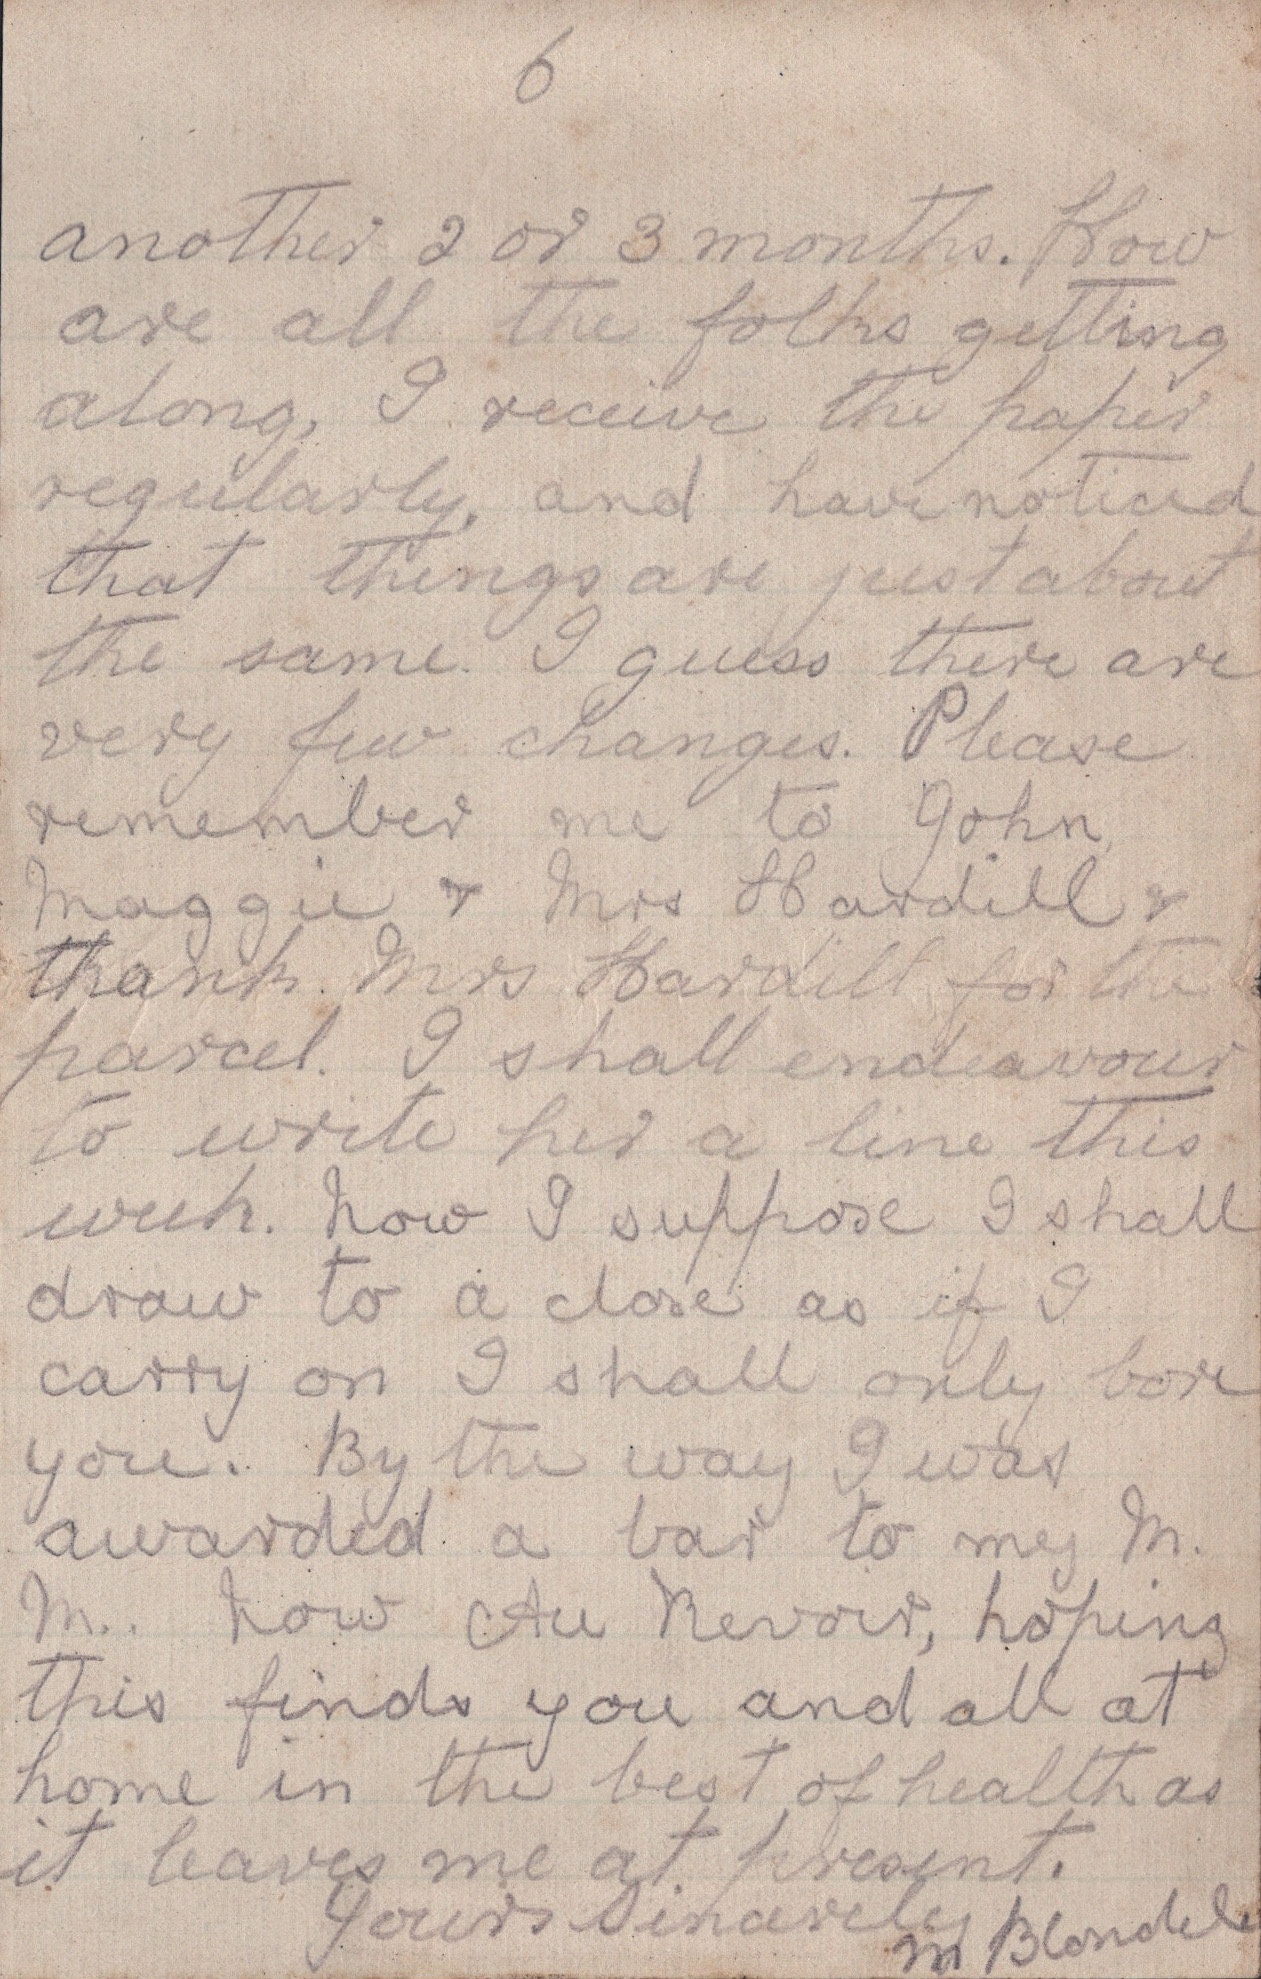 6
another 2 or 3 months. How
are all the folks getting
along, I receive the paper
regularly, and have noticed
that things are just about
the same. I guess there are
very few changes. Please
remember me to John,
Maggie & Mrs Hardill &
thank Mrs Hardill for the
parcel. I shall endeavour
to write her a line this
week. Now I suppose I shall
draw to a close as if I
carry on I shall only bore
you. By the way I was
awarded a bar to my M.
M.. Now Au Revoir, hoping
this finds you and all at
home in the best of health as
it leaves me at present.
Yours Sincerely
M Blondell